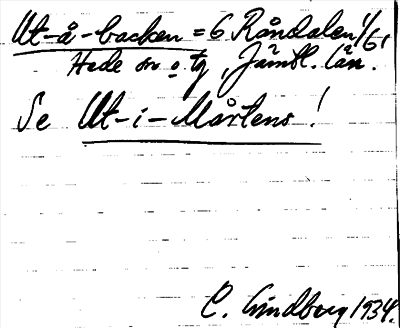 Ut-å-backen = 6 Råndalen 1/61
Hede sn o. tg, Jämtl. län.
Se Ut-i-Mårtens!
C. Lindberg 1934.